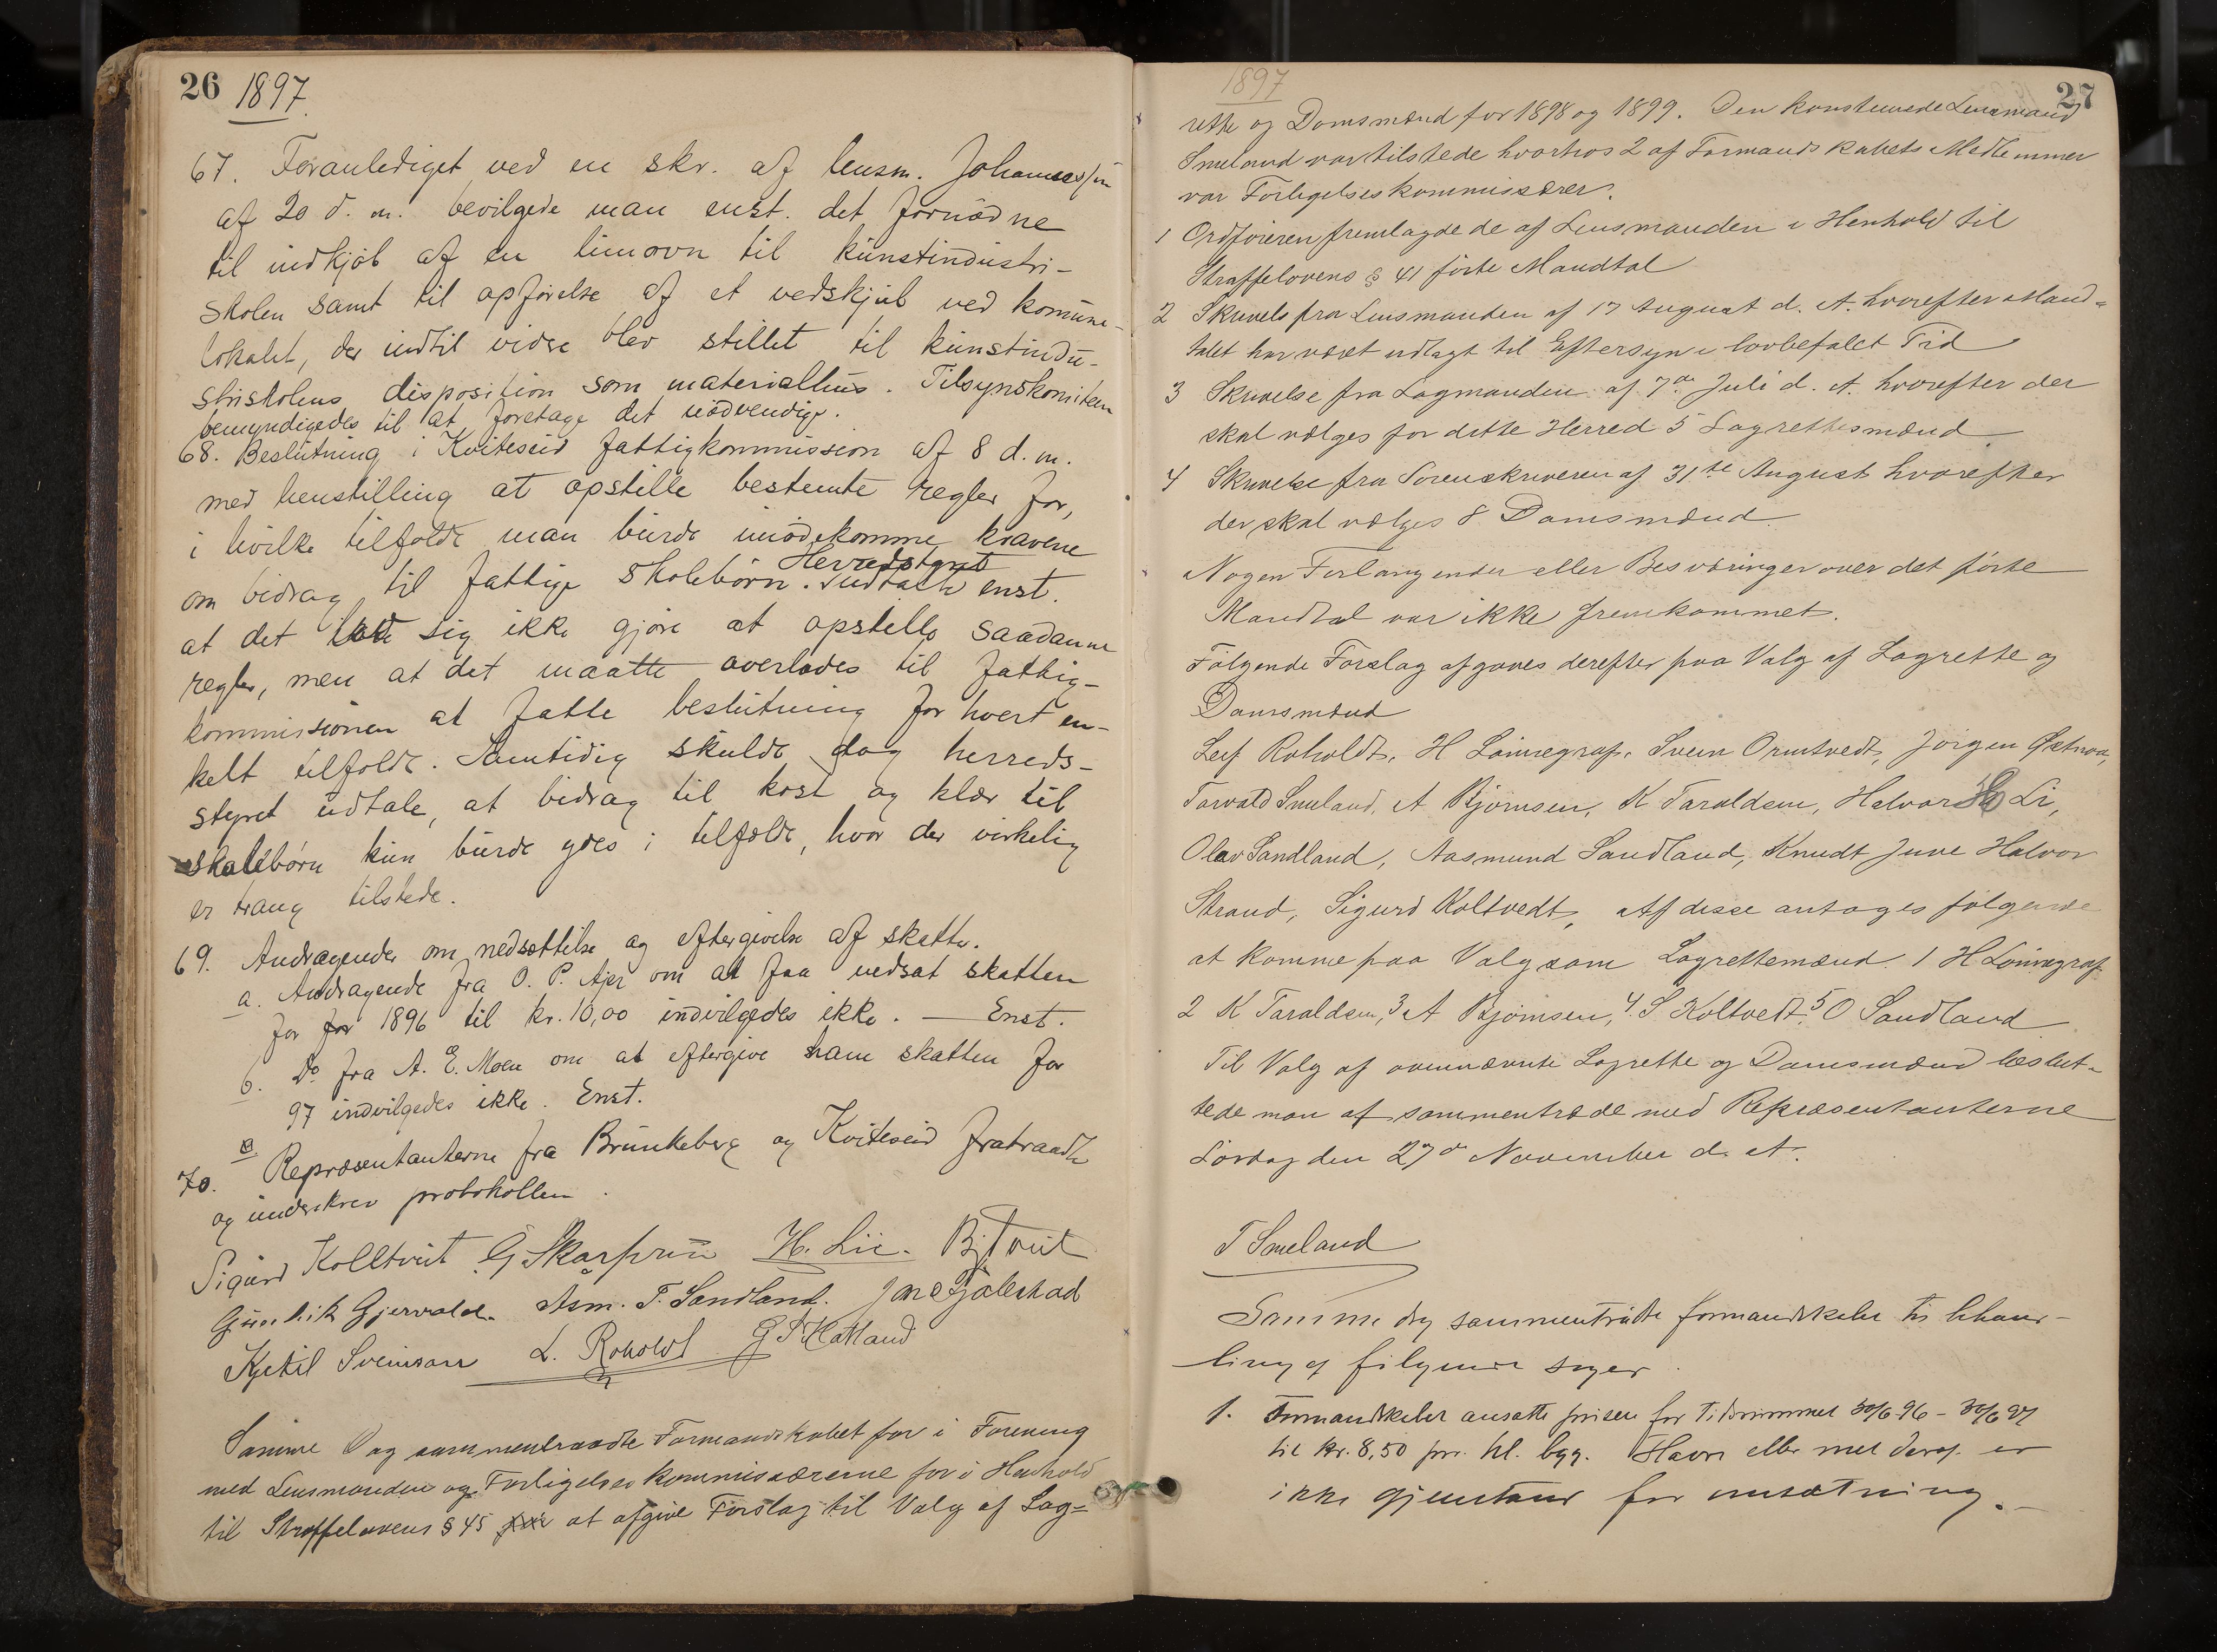 26 1897.
67. Foranlediget ved en skr. af lensm. Johannessen
af 20 d. m. bevilgede man enst. det fornødne
til indkjøb af en limovn til kunstindustri-
skolen samt til opførelse af et vedskjul ved komune-
lokalet, der indtil vidre blev stillet til kunstindu-
striskolens disposition som materialhus. Tilsynskomiteen
bemyndigedes til at foretage det nødvendige.
68. Beslutning i Kviteseid fattigkommission af 8 d. m.
med henstilling at opstille bestemte regler for,
i hvilke tilfælde man burde imødekomme kravene
Herredstyret
om bidrag til fattige skolebørn. Udtalte enst.
at det lod sig ikke gjøre at opstille saadanne
regler, men at det maatte overlades til fattig-
kommissionen at fatte beslutning for hvert en-
kelt tilfælde. Samtidig skulde dog herreds-
styret udtale, at bidrag til kost og klær til
skolebørn kun burde ydes i tilfælde, hvor der virkelig
er trang tilstede.
69. Andragender om nedsættelse og eftergivelse af skatte.
a. Andragende fra O. P. Ajer om at faa nedsat skatten
for for 1896 til kr. 10,00 indvilgedes ikke. — Enst.
b. Do fra A. E. Moen om at eftergive ham skatten for
97 indvilgedes ikke. Enst.
70. Repræsentanterne fra Brunkeberg og Kviteseid fratraadte
og underskrev protokollen.
Sigurd Kolltveit G. Skarprud H. Lie. B. Tveit
Gunleik Gjervolds. Asm. T. Sandland. Jone Fjalestad
Kjetil Sveinson L. Roholdt G T Hatland
Samme Dag sammentraadte Formandskabet for i Forening
med Lensmanden og Forligelseskommissærerne for i Henhold
til Straffelovens § 45 at afgive Forslag til Valg af Lag=
1897 27
rette og Domsmænd for 1898 og 1899. Den konstituerede Lensmand
Smeland var tilstede hvorhos 2 af Formandskabets Medlemmer
var Forligelseskommissærer.
1 Ordføreren fremlagde de af Lensmanden i Henhold til
Straffelovens § 41 førte Mandtal
2 Skrivels fra Lensmanden af 17 August d. A. hvorefter Mand=
talet har været udlagt til Eftersyn i lovbefalet Tid
3 Skrivelse fra Lagmanden af 7de Juli d. A. hvorefter der
skal vælges for dette Herred 5 Lagrettesmænd.
4 Skrivelse fra Sorenskriveren af 31te August hvorefter
der skal vælges 8 Domsmænd.
Nogen Forlangender eller Besværinger over det førte
Mandtal var ikke fremkommet.
Følgende Forslag afgaves derefter paa Valg af Lagrette og
Domsmænd
Leif Roholdt, H Lønnegraf, Svein Ormtvedt, Jørgen Østraa,
Torvald Smeland, A Bjørnsen, K Taraldsen, Halvor Li,
Olav Sandland, Aasmund Sandland, Knudt Juve Halvor
Strand, Sigurd Koltvedt, Af disse antages følgende
at komme paa Valg som Lagrettemænd. 1 H Lønnegraf
2 K Taraldsen, 3 A Bjørnsen, 4. S. Koltvedt, 5 O Sandland
Til Valg af ovennævnte Lagrette og Domsmænd beslut-
tede man at sammentræde med Repræsentanterne
Lørdag den 27de November d. A.
T Smeland
Samme dag sammentraadte formandskabet til behand-
ling af følgende sager.
1. Formandskabet ansatte prisen for Tidsrummet 30/6 96 - 30/6 97
til Kr. 8,50 pr. hl. byg. Havre eller mel deraf er
ikke gjenstand for omsætning.